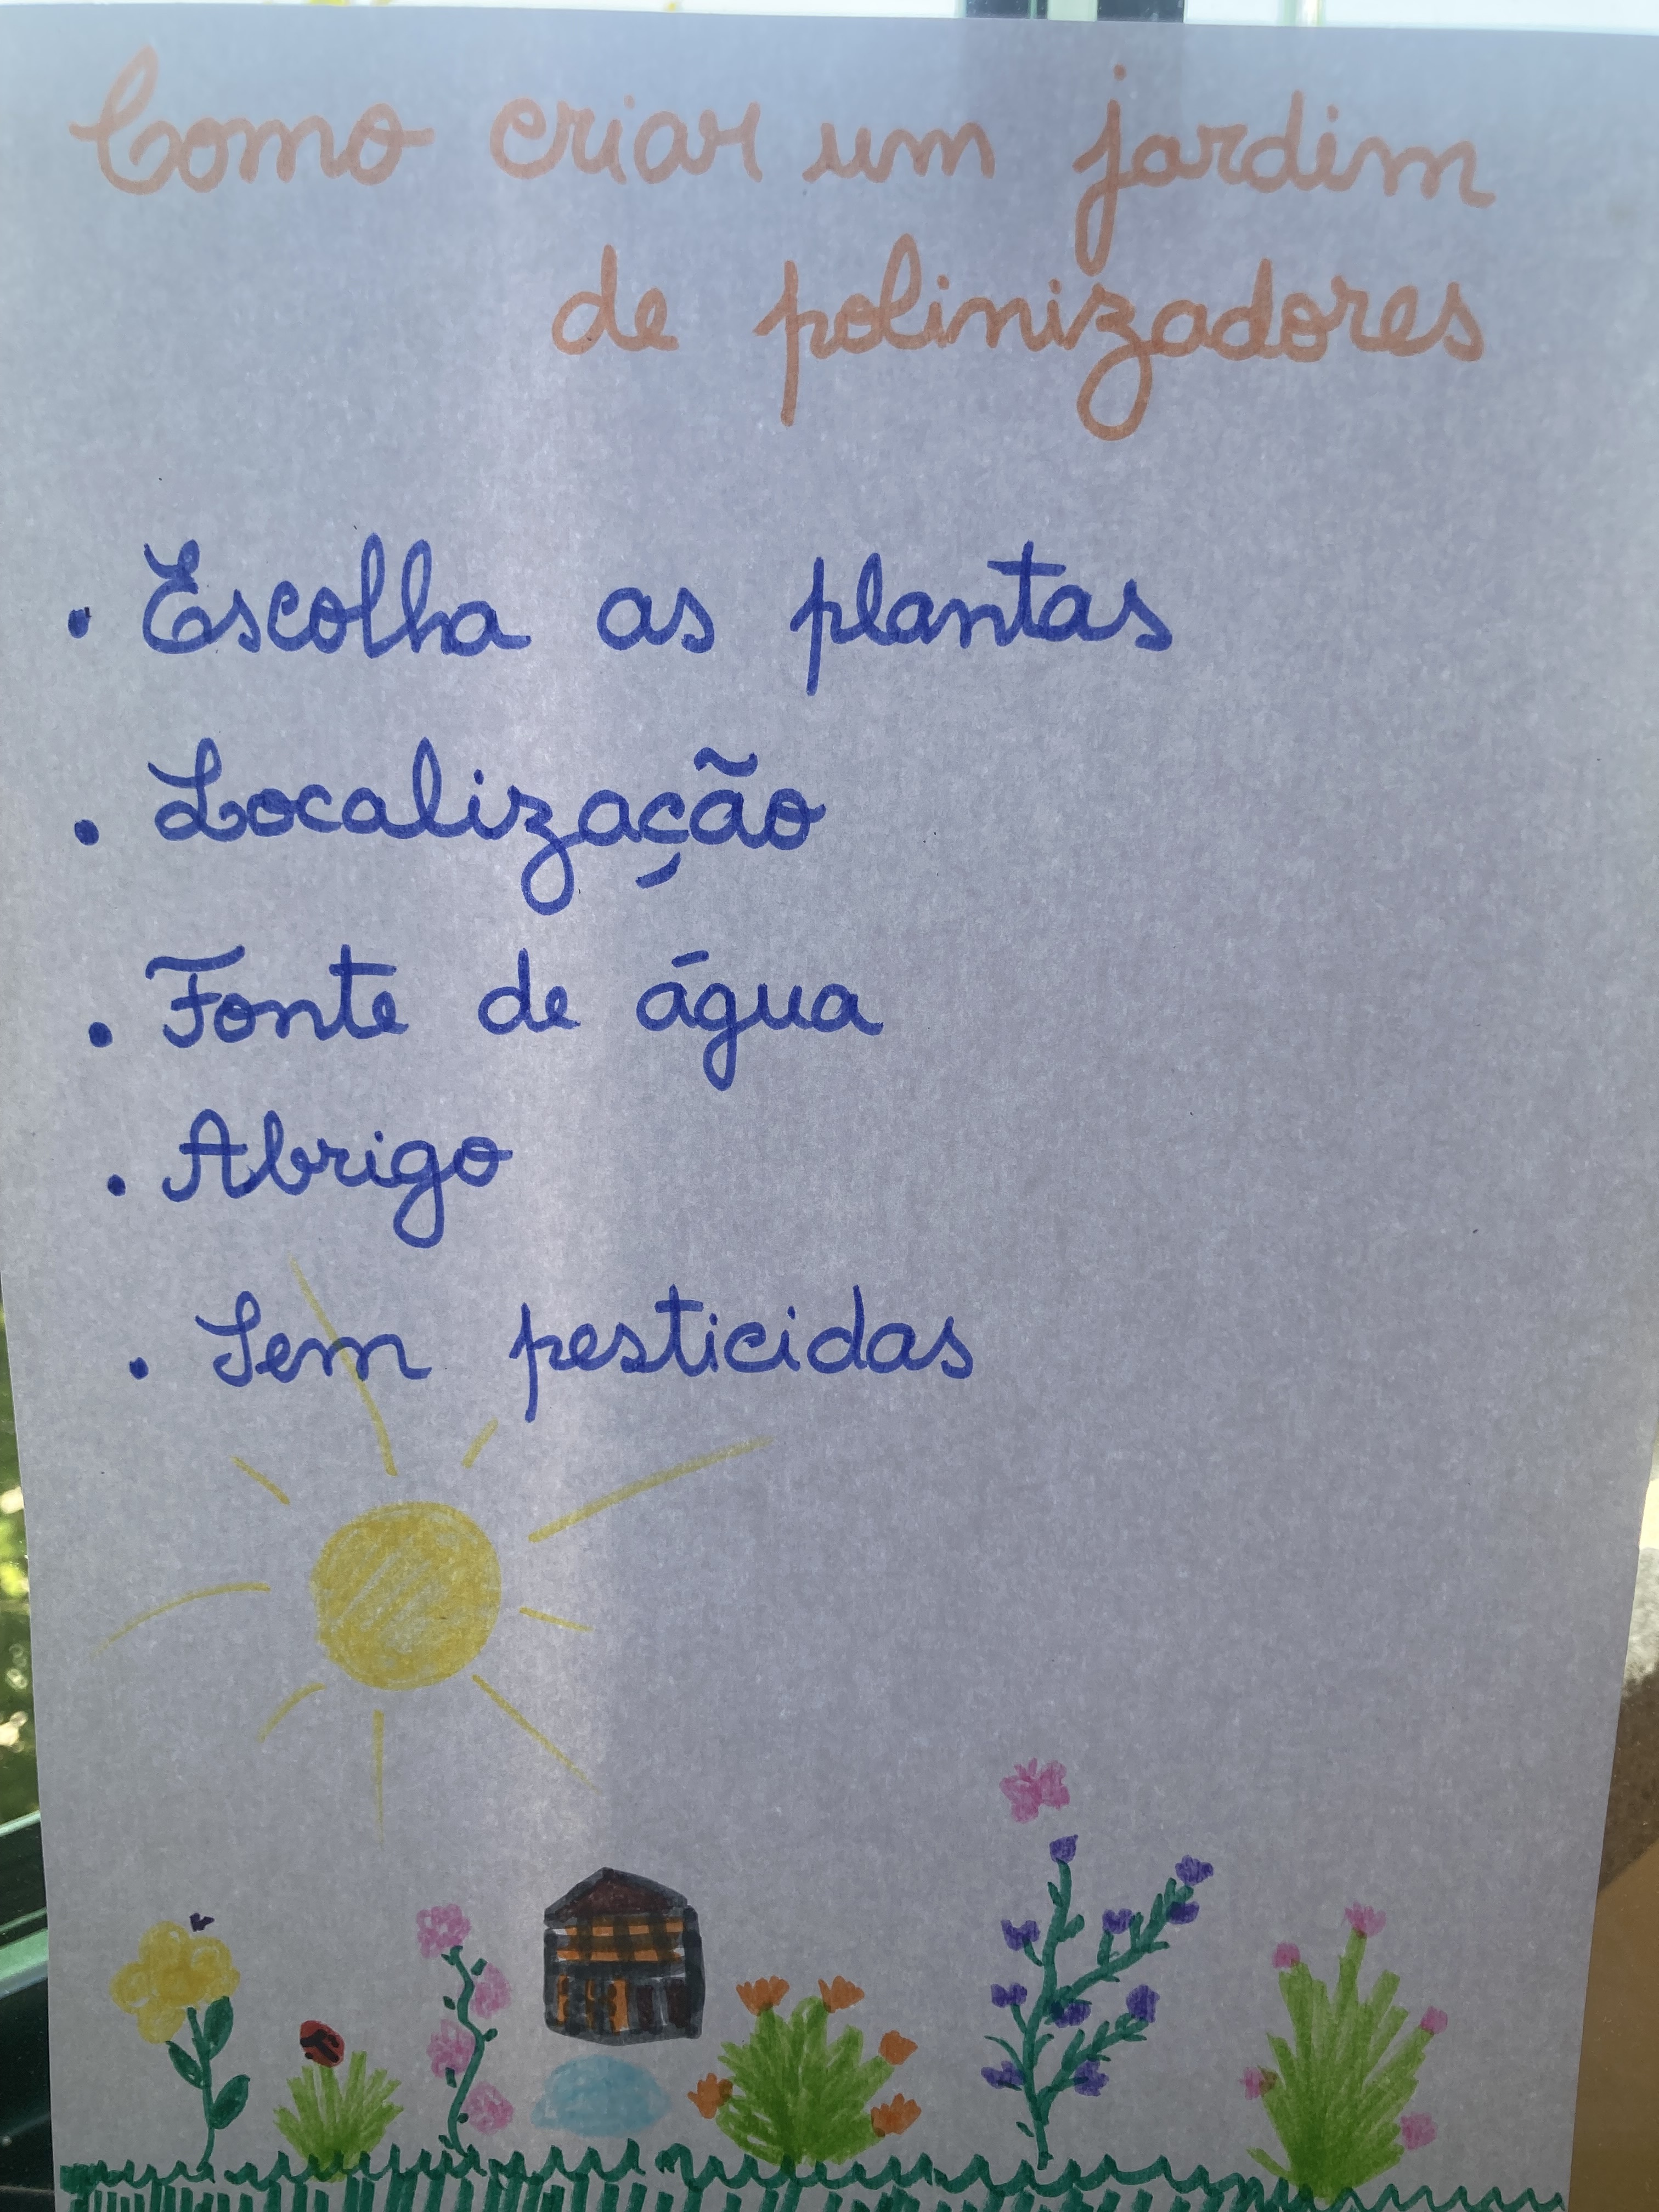 Como criar um jardim
de polinizadores
• Escolha as plantas
• Localização
• Fonte de água
• Abrigo
• Sem pesticidas